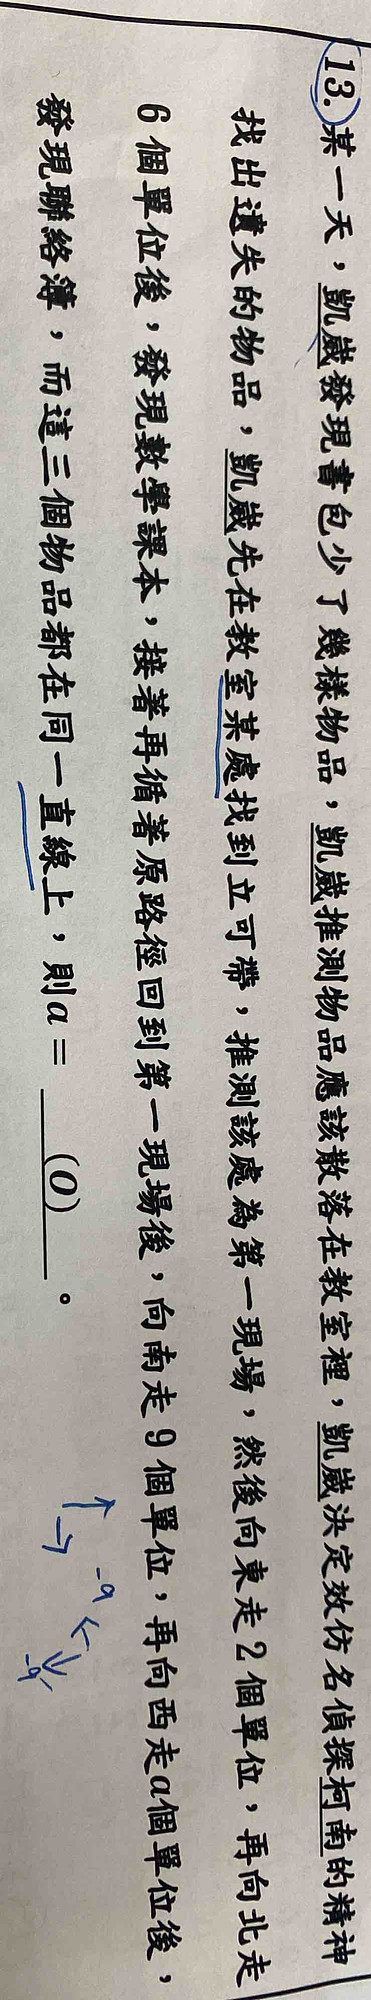 13. 某一天，凱崴發現書包少了幾樣物品，凱崴推測物品應該散落在教室裡，凱崴決定效仿名偵探柯南的精神
找出遺失的物品，凱崴先在教室某處找到立可帶，推測該處為第一現場，然後向東走2個單位，再向北走
6個單位後，發現數學課本，接著再循著原路徑回到第一現場後，向南走9個單位，再向西走a個單位後，
發現聯絡簿，而這三個物品都在同一直線上，則a＝ (O) 。
-9
-9